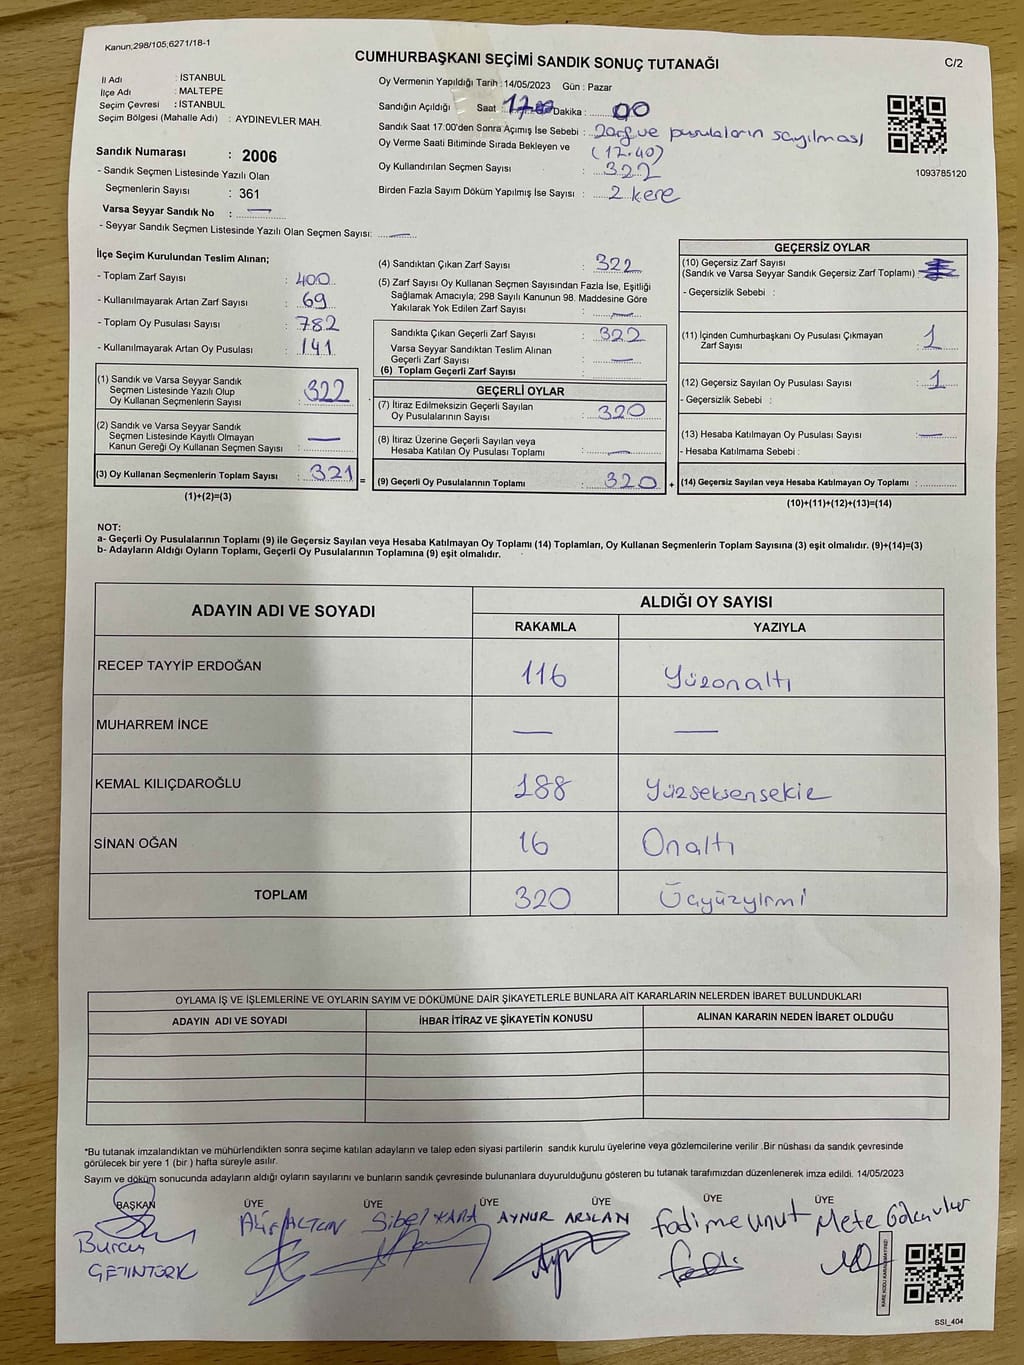 Kanun;298/105;6271/18-1
CUMHURBAŞKANI SEÇİMİ SANDIK SONUÇ TUTANAĞI
C/2
İl Adı : İSTANBUL
İlçe Adı : MALTEPE
Seçim Çevresi : İSTANBUL
Seçim Bölgesi (Mahalle Adı) : AYDINEVLER MAH.
Sandık Numarası : 2006
- Sandık Seçmen Listesinde Yazılı Olan
Seçmenlerin Sayısı : 361
Varsa Seyyar Sandık No : —
- Seyyar Sandık Seçmen Listesinde Yazılı Olan Seçmen Sayısı: —
Oy Vermenin Yapıldığı Tarih : 14/05/2023 Gün : Pazar
Sandığın Açıldığı Saat : 17.00 Dakika : 00
Sandık Saat 17:00'den Sonra Açımış İse Sebebi : Zarf ve pusulaların sayılması
Oy Verme Saati Bitiminde Sırada Bekleyen ve (17.40)
Oy Kullandırılan Seçmen Sayısı : 322
Birden Fazla Sayım Döküm Yapılmış İse Sayısı : 2 kere
1093785120
İlçe Seçim Kurulundan Teslim Alınan;
- Toplam Zarf Sayısı : 400
- Kullanılmayarak Artan Zarf Sayısı : 69
- Toplam Oy Pusulası Sayısı : 782
- Kullanılmayarak Artan Oy Pusulası : 141
(1) Sandık ve Varsa Seyyar Sandık
Seçmen Listesinde Yazılı Olup
Oy Kullanan Seçmenlerin Sayısı : 322
(2) Sandık ve Varsa Seyyar Sandık
Seçmen Listesinde Kayıtlı Olmayan
Kanun Gereği Oy Kullanan Seçmen Sayısı : —
(3) Oy Kullanan Seçmenlerin Toplam Sayısı : 321 =
(1)+(2)=(3)
(4) Sandıktan Çıkan Zarf Sayısı : 322
(5) Zarf Sayısı Oy Kullanan Seçmen Sayısından Fazla İse, Eşitliği
Sağlamak Amacıyla; 298 Sayılı Kanunun 98. Maddesine Göre
Yakılarak Yok Edilen Zarf Sayısı : —
Sandıkta Çıkan Geçerli Zarf Sayısı : 322
Varsa Seyyar Sandıktan Teslim Alınan
Geçerli Zarf Sayısı : —
(6) Toplam Geçerli Zarf Sayısı :
GEÇERLİ OYLAR
(7) İtiraz Edilmeksizin Geçerli Sayılan
Oy Pusulalarının Sayısı : 320
(8) İtiraz Üzerine Geçerli Sayılan veya
Hesaba Katılan Oy Pusulası Toplamı : —
(9) Geçerli Oy Pusulalarının Toplamı : 320 +
GEÇERSİZ OYLAR
(10) Geçersiz Zarf Sayısı
(Sandık ve Varsa Seyyar Sandık Geçersiz Zarf Toplamı) :
- Geçersizlik Sebebi :
(11) İçinden Cumhurbaşkanı Oy Pusulası Çıkmayan
Zarf Sayısı : 1
(12) Geçersiz Sayılan Oy Pusulası Sayısı : 1
- Geçersizlik Sebebi :
(13) Hesaba Katılmayan Oy Pusulası Sayısı : —
- Hesaba Katılmama Sebebi :
(14) Geçersiz Sayılan veya Hesaba Katılmayan Oy Toplamı :
(10)+(11)+(12)+(13)=(14)
NOT:
a- Geçerli Oy Pusulalarının Toplamı (9) ile Geçersiz Sayılan veya Hesaba Katılmayan Oy Toplamı (14) Toplamları, Oy Kullanan Seçmenlerin Toplam Sayısına (3) eşit olmalıdır. (9)+(14)=(3)
b- Adayların Aldığı Oyların Toplamı, Geçerli Oy Pusulalarının Toplamına (9) eşit olmalıdır.
ADAYIN ADI VE SOYADI ALDIĞI OY SAYISI
RAKAMLA YAZIYLA
RECEP TAYYİP ERDOĞAN 116 Yüzonaltı
MUHARREM İNCE — —
KEMAL KILIÇDAROĞLU 188 Yüzseksensekiz
SİNAN OĞAN 16 Onaltı
TOPLAM 320 Üçyüzyirmi
OYLAMA İŞ VE İŞLEMLERİNE VE OYLARIN SAYIM VE DÖKÜMÜNE DAİR ŞİKAYETLERLE BUNLARA AİT KARARLARIN NELERDEN İBARET BULUNDUKLARI
ADAYIN ADI VE SOYADI İHBAR İTİRAZ VE ŞİKAYETİN KONUSU ALINAN KARARIN NEDEN İBARET OLDUĞU
*Bu tutanak imzalandıktan ve mühürlendikten sonra seçime katılan adayların ve talep eden siyasi partilerin sandık kurulu üyelerine veya gözlemcilerine verilir .Bir nüshası da sandık çevresinde
görülecek bir yere 1 (bir ) hafta süreyle asılır.
Sayım ve döküm sonucunda adayların aldığı oyların sayılarını ve bunların sandık çevresinde bulunanlara duyurulduğunu gösteren bu tutanak tarafımızdan düzenlenerek imza edildi. 14/05/2023
BAŞKAN ÜYE ÜYE ÜYE ÜYE ÜYE ÜYE
Burcu ALTUN Sibel KARA AYNUR ARSLAN Fadime unut Mete
KARE KODU KARALAMAYINIZ!
SSI_404